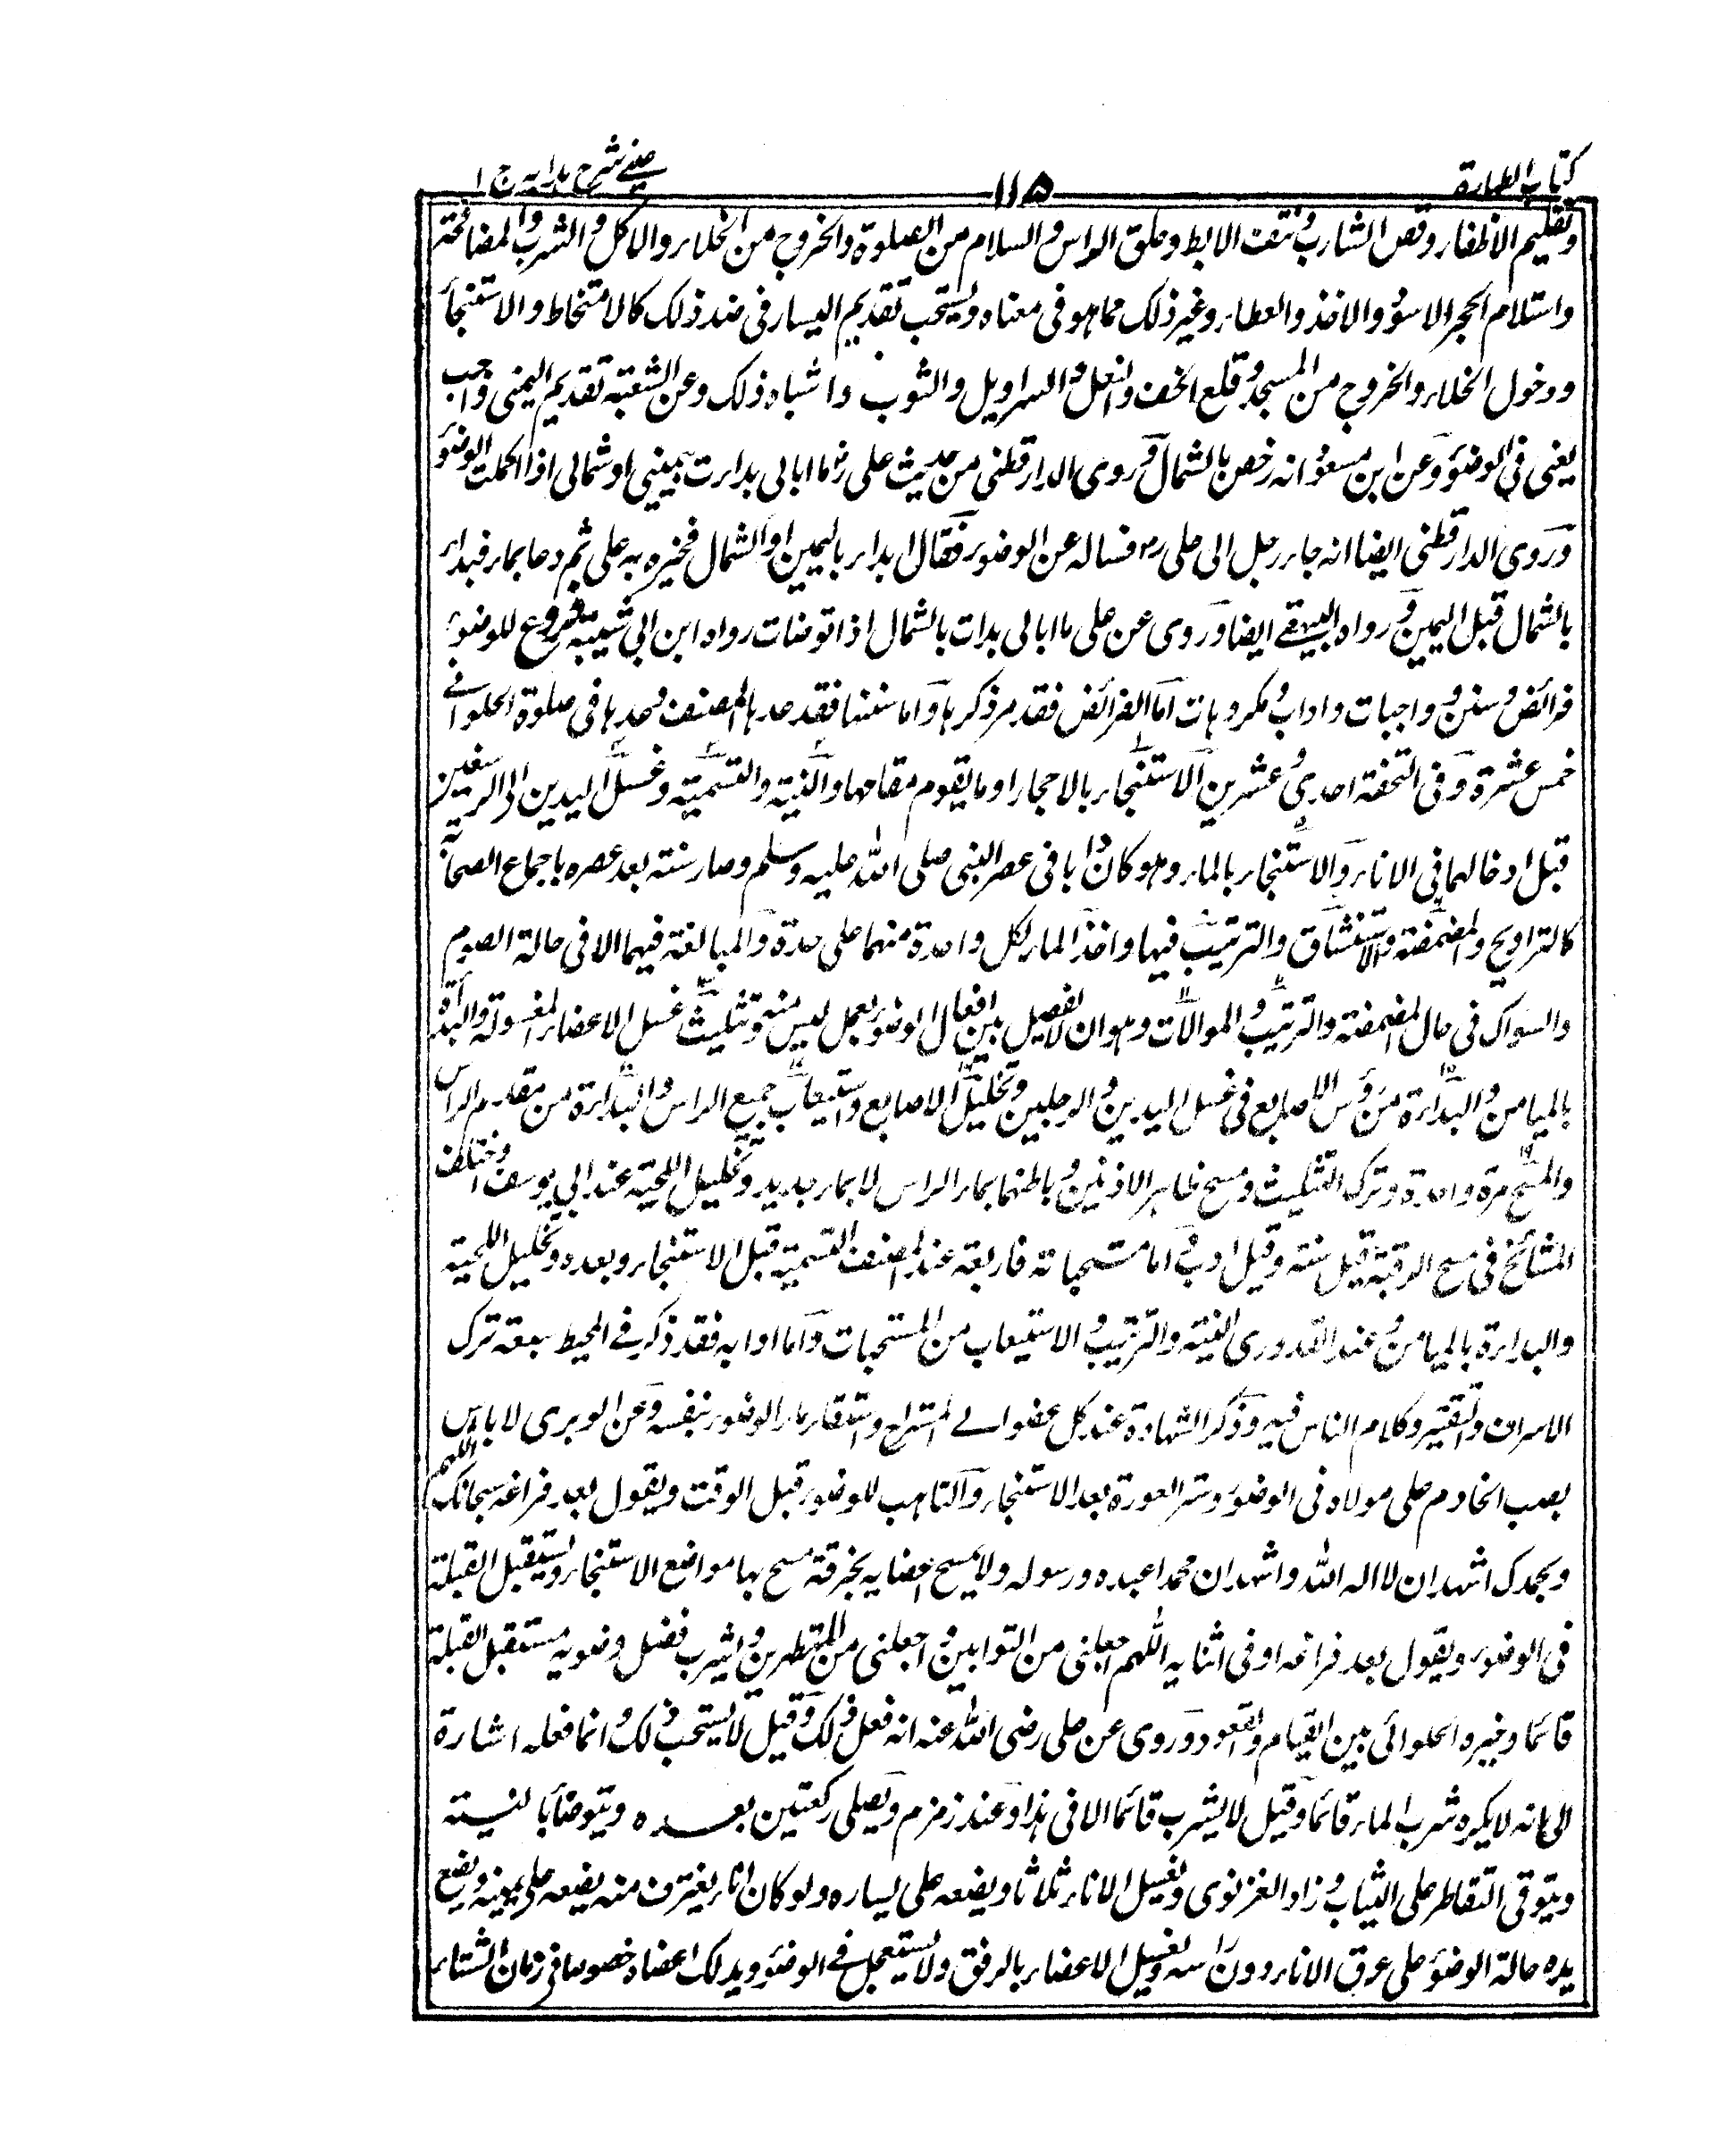 كتاب الطهارة
١١٥
عيني شرح هدايه ج ١
وتقليم الاظفار وقص الشارب ونتف الابط وحلق الراس والسلام من الصلوة والخروج من الخلاء والاكل والشرب والمصافحة
واستلام الحجر الاسود والاخذ والعطاء وغير ذلك مما هو فى معناه ويستحب تقديم اليسار فى ضد ذلك كالامتخاط والاستنجاء
ودخول الخلاء والخروج من المسجد وقلع الخف والنعل والسراويل والثوب واشباه ذلك وعن الشعبة تقديم اليمنى واجب
يعنى فى الوضوء وعن ابن مسعود انه رخص بالشمال وروى الدارقطنى من حديث على رض ما ابالى بدات بيمينى او شمالى اذا اكملت الوضوء
وروى الدارقطنى ايضا انه جاء رجل الى على رض فساله عن الوضوء فقال ابدا باليمين او الشمال فخيره به على ثم دعا بماء فبدا
بالشمال قبل اليمين ورواه البيهقے ايضا وروى عن على ما ابالى بدات بالشمال اذا توضات رواه ابن ابى شيبة فروع للوضوء
فرائض وسنن وواجبات واداب ومكروهات اما الفرائض فقد مر ذكرها واما سننها فقد عدها المصنف وعدها فى صلوة الحلوانے
خمس عشرة وفى التحفة احدى وعشرين الاستنجاء بالاحجار او ما يقوم مقامها والنية والتسمية وغسل اليدين الى الرسغين
قبل ادخالهما فى الاناء والاستنجاء بالماء وهو كان دابا فى عصر النبى صلى الله عليه وسلم وصار سنة بعد عصره باجماع الصحابة
كالتراويح والمضمضة والاستنشاق والترتيب فيها واخذ الماء لكل واحدة منهما على حدة والمبالغة فيهما الا فى حالة الصوم
والسواك فى حال المضمضة والترتيب والموالات وهو ان لا يفصل بين افعال الوضوء بعمل ليس منه وتثليث غسل الاعضاء المغسولة والبداءة
بالميامن والبداءة من رؤس الاصابع فى غسل اليدين والرجلين وتخليل الاصابع واستيعاب جميع الراس والبداءة من مقدم الراس
والمسح مرة واحدة وترك التثليث ومسح ظاهر الاذنين وباطنهما بماء الراس لا بماء جديد وتخليل اللحية عند ابى يوسف واختلف
المشائخ فى مسح الرقبة قيل سنة وقيل ادب واما مستحباته فاربعة عند المصنف التسمية قبل الاستنجاء وبعده وتخليل اللحية
والبداءة بالميامن وعند القدورى النية والترتيب والاستيعاب من المستحبات واما ادابه فقد ذكر فے المحيط سبعة ترك
الاسراف والتقتير وكلام الناس فيه وذكر الشهادة عند كل عضو الے اخره واستقاء ماء الوضوء بنفسه وعن الوبرى لا باس
بصب الخادم على مولاه فى الوضوء وستر العورة بعد الاستنجاء والتاهب للوضوء قبل الوقت ويقول بعد فراغه سبحانك اللهم
وبحمدك اشهد ان لا اله الله واشهد ان محمدا عبده ورسوله ولا يمسح اعضايه بخرقة مسح بها مواضع الاستنجاء ويستقبل القبلة
فى الوضوء ويقول بعد فراغه او فى اثنايه اللهم اجعلنى من التوابين واجعلنى من المتطهرين ويشرب فضل وضويه مستقبل القبلة
قائما وخيره الحلوائى بين القيام والقعود وروى عن على رضى الله عنه انه فعل ذلك وقيل لا يستحب ذلك وانما فعله اشارة
الى انه لا يكره شرب الماء قائما وقيل لا يشرب قائما الا فى هذا وعند زمزم ويصلى ركعتين بعده ويتوضأ بالنية
ويتوقى التقاطر على الثياب وزاد الغزنوى ويغسل الاناء ثلاثا ويضعه على يساره ولو كان اناء يغترف منه يضعه على يمينه ويضع
يده حالة الوضوء على عرق الاناء دون راسه ويغسل الاعضاء بالرفق ولا يستعجل فے الوضوء ويدلك اعضاه خصوصا فى زمان الشتاء